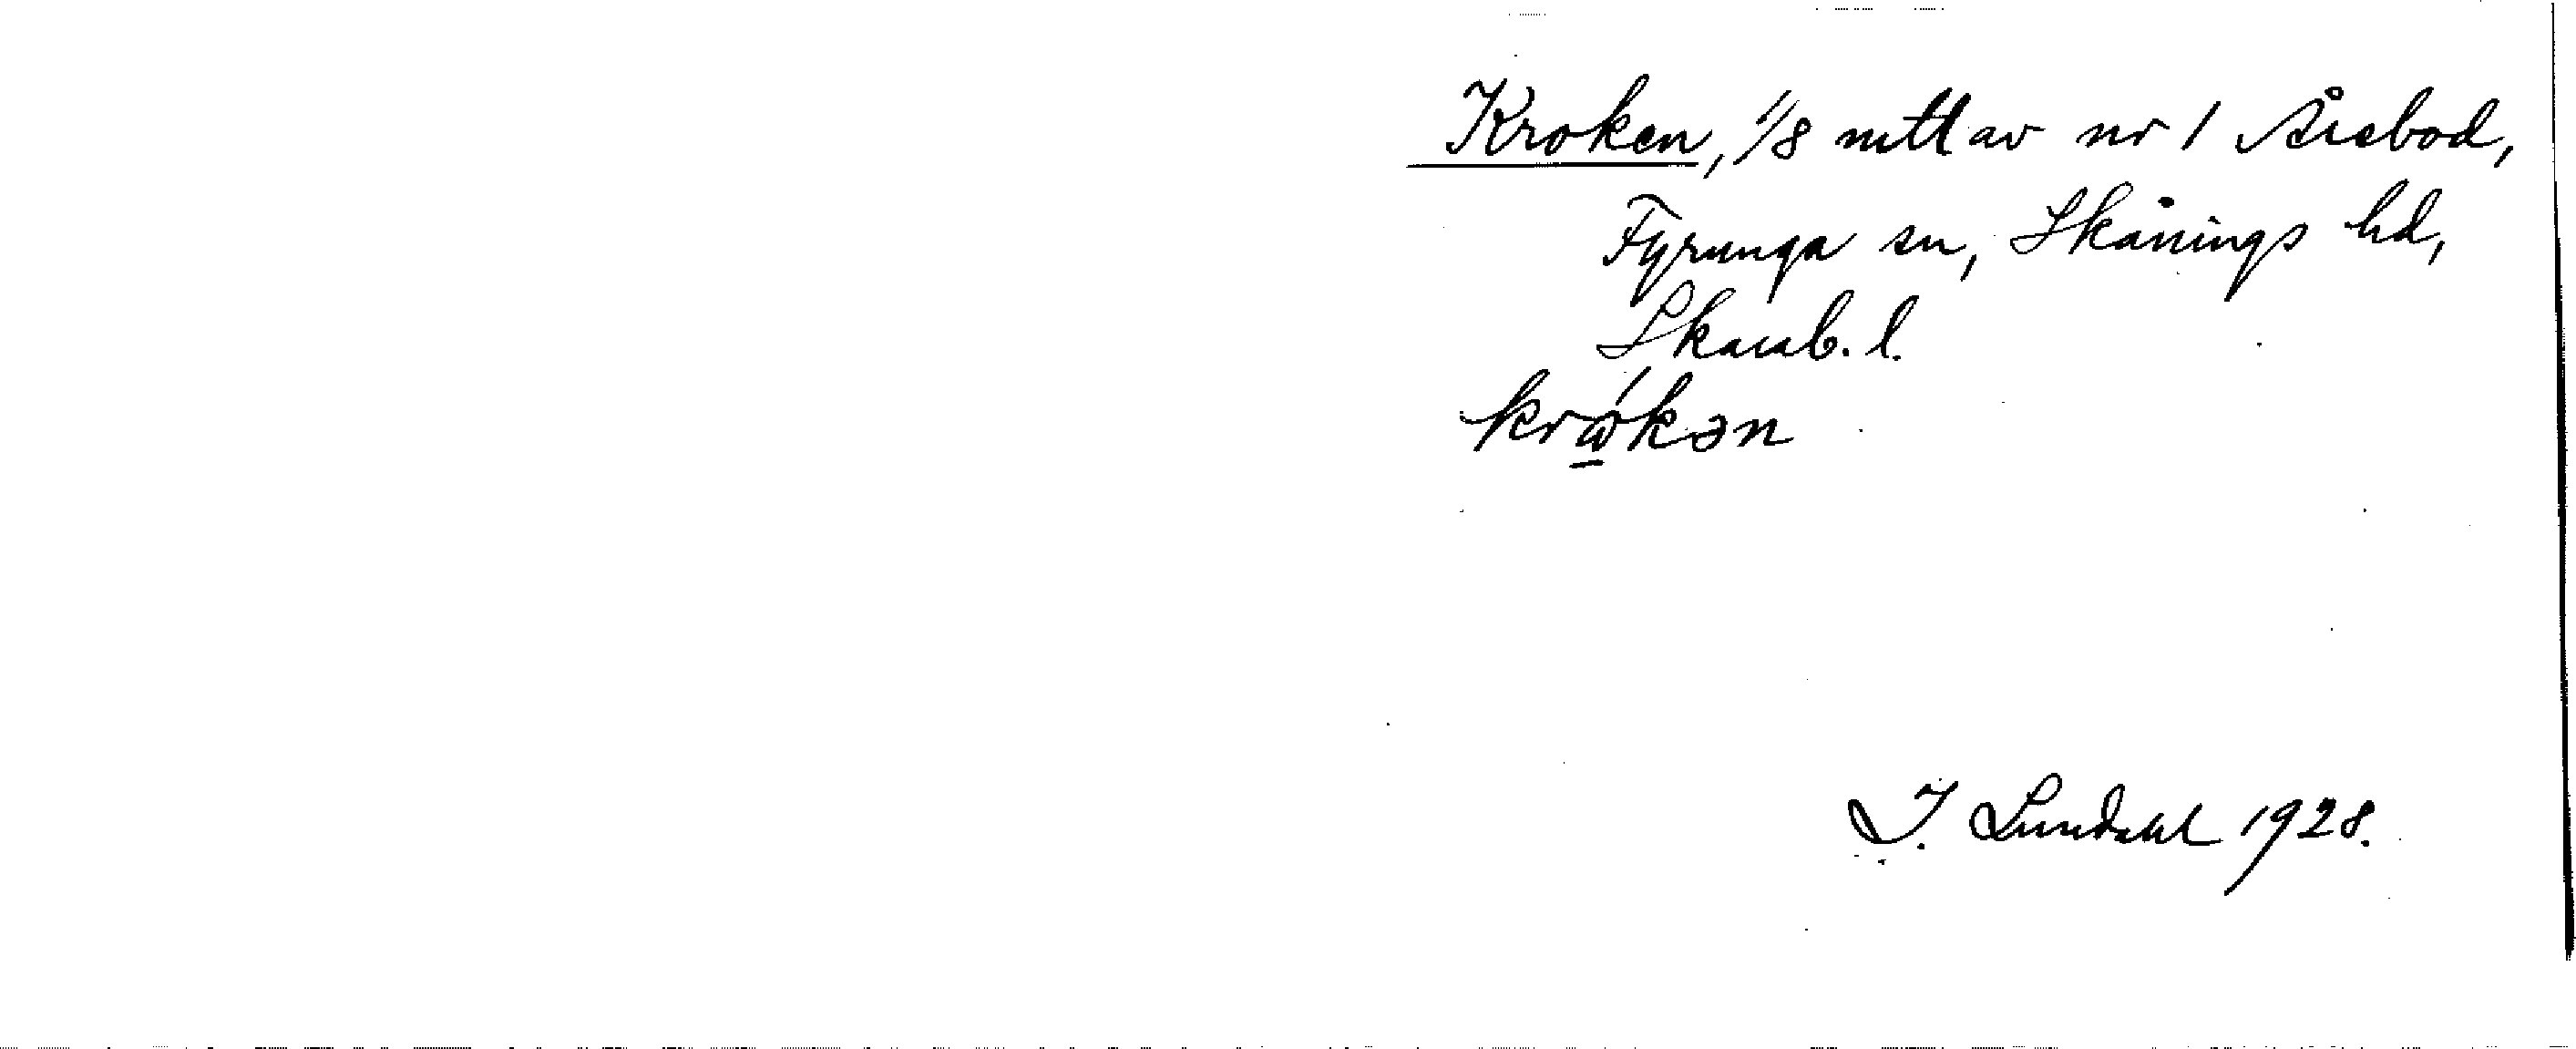 Kroken, 1/8 mtl av nr 1 Årebod,
Fyrunga sn, Skånings hd,
Skarab. l.
krώ̲kən
I. Lundahl 1928.